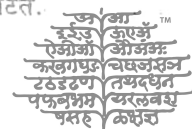 अ आ ™
इईउ ऊएॲ
ऐओऔ ऑअंअः
कखगघङ चछजझञ
टठडढण तथदधन
पफबभम यरलवश
षसह ळक्षज्ञ